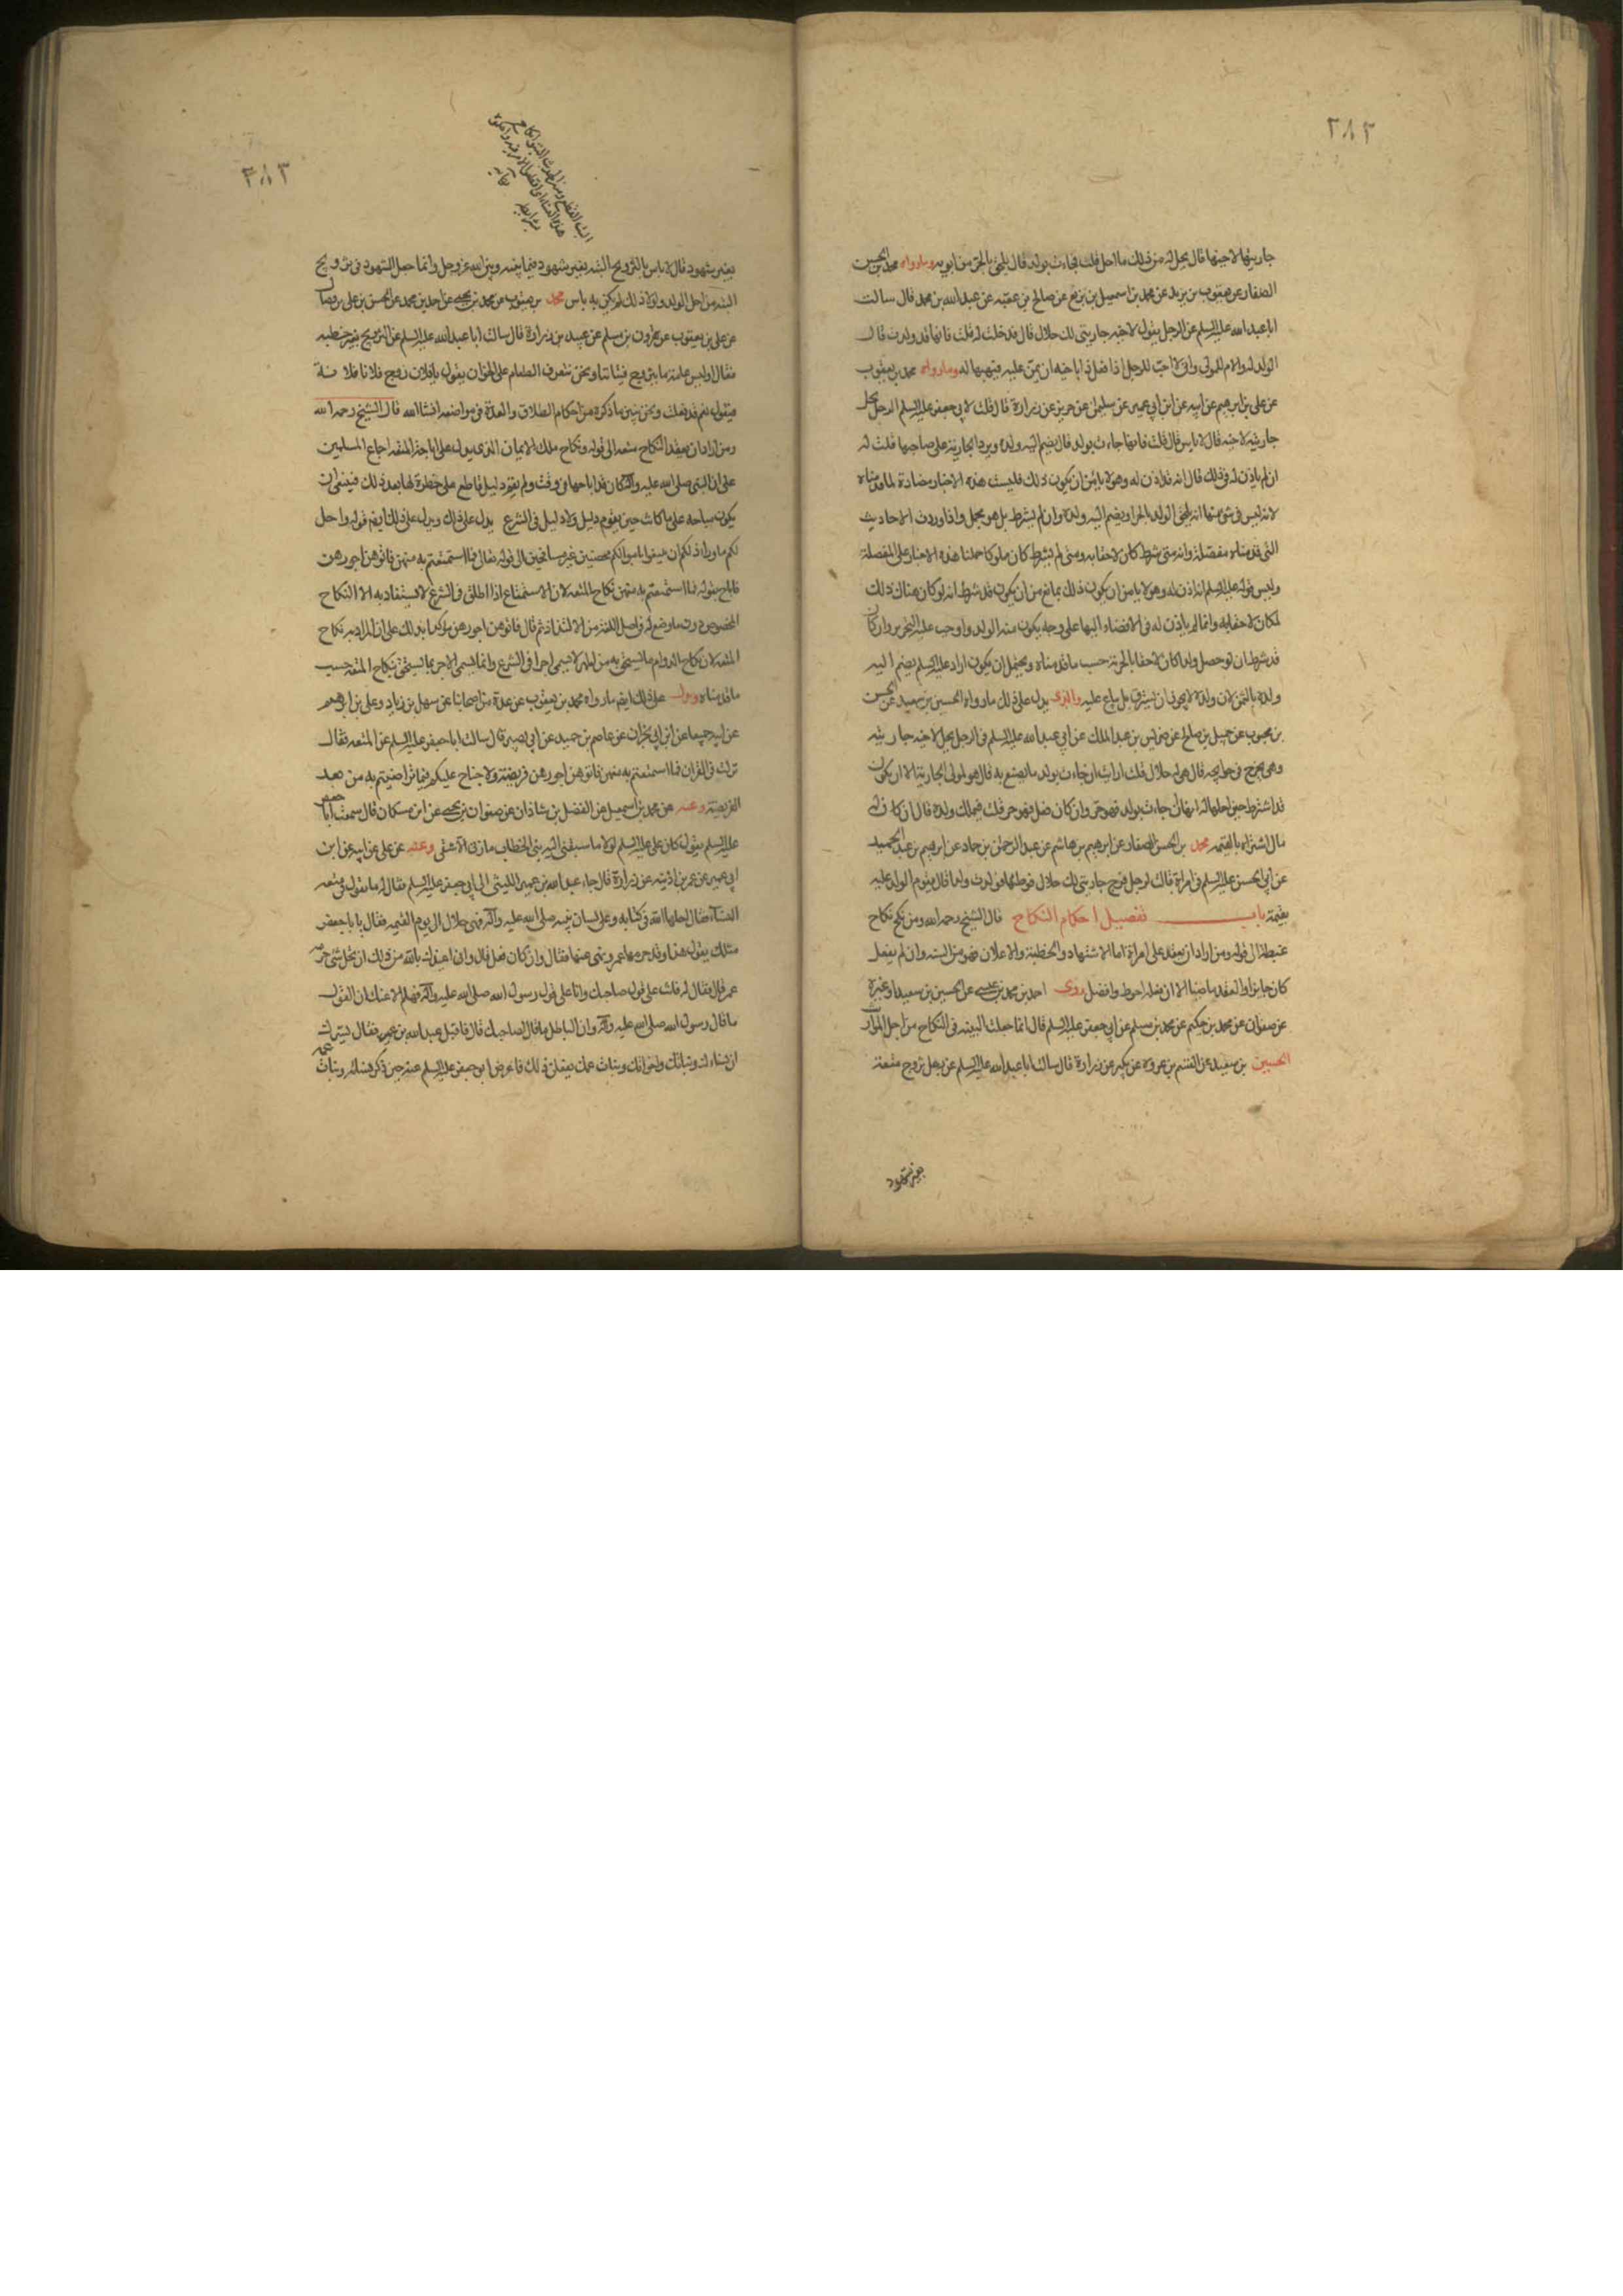 ٢٨٢
جاريتها لاخيها قال يحل له من ذلك ما احل قلت فجاءت بولد قال يلحق بالحر من ابويه وما رواه محمد بن الحسن
الصفار عن يعقوب بن يزيد عن محمد بن اسمعيل بن بزيع عن صالح بن عقبه عن عبد الله بن محمد قال سالت
ابا عبد الله عليه السلم عن الرجل يقول لاخيه جاريتي لك حلال قال قد حلت له قلت فانها قد ولدت قال
الولد له والام للمولى واني لاحب للرجل اذا فعل ذا باخيه ان يمن عليه فيهبها له وما رواه محمد بن يعقوب
عن علي بن ابرهيم عن ابيه عن ابن ابي عمير عن سليمن عن حريز عن زرارة قال قلت لابي جعفر عليه السلم الرجل يحل
جاريته لاخيه قال لا باس قال قلت فانها جاءت بولد قال يضم اليه ولده ويرد الجارية على صاحبها قلت له
ان لم ياذن له في ذلك قال انه قد اذن له وهو لا يامن ان يكون ذلك فليست هذه الاخبار مضادة لما قدمناه
لانه ليس في شئ منها انه يلحق الولد بالحر او يضم اليه ولده وان لم يشرط بل هو مجمل واذا وردت الاحاديث
التي قدمناه مفصلة وانه متى شرط كان لاحقا به ومتى لم يشرط كان مملوكا حملنا هذه الاخبار على المفصلة
وليس قوله عليه السلم انه اذن له وهو لا يامن ان يكون ذلك بمانع من ان يكون قد شرط انه لو كان هناك ذلك
لمكان لاحقا به وانما لم ياذن له في الافضاء اليها على وجه يكون منه الولد واوجب عليه التحرز وان كان
قد شرط ان لو حصل ولد لكان لاحقا بالحرية حسب ما قدمناه ويحتمل ان يكون اراد عليه السلم يضم اليه
ولده بالثمن لان ولده لا يجوز ان يسترق بل يباع عليه والذي يدل على ذلك ما رواه الحسين بن سعيد عن الحسن
بن محبوب عن جميل بن صالح عن ضريس بن عبد الملك عن ابي عبد الله عليه السلم في الرجل يحل لاخيه جاريته
وهي تخرج في حوايجه قال هي له حلال قلت ارايت ان جاءت بولد ما يصنع به قال هو لمولى الجارية الا ان يكون
قد اشترط حين احلها له انها ان جاءت بولد فهو حر وان كان فعل فهو حر قلت فيملك ولده قال ان كان له
مال اشتراه بالقيمه محمد بن الحسن الصفار عن ابرهيم بن هاشم عن عبد الرحمن بن حماد عن ابرهيم بن عبد الحميد
عن ابي الحسن عليه السلم في امراة قالت لرجل فرج جاريتي لك حلال فوطئها فولدت ولدا قال يقوم الولد عليه
بقيمة باب تفصيل احكام النكاح قال الشيخ رحمه الله ومن نكح نكاح
غبطة الى قوله ومن اراد ان يعقد على امراة اما الاشتهاد والخطبة والاعلان فهو من السنه وان لم يفعل
كان جايزا والعقد ماضيا الا ان فعله احوط وافضل روى احمد بن محمد بن عيسى عن الحسين بن سعيد او غيره
عن صفوان عن محمد بن حكيم عن محمد بن مسلم عن ابي جعفر عليه السلم قال انما جعلت البينه في النكاح من اجل المواريث
الحسين بن سعيد عن القسم بن عروة عن بكير عن زرارة قال سالت ابا عبد الله عليه السلم عن رجل تزوج متعة
بغير شهود
٢٨٣
بغير شهود قال لا باس بالتزويج البته بغير شهود فيما بينه وبين الله عز وجل وانما جعل الشهود في تزويج
البته من اجل الولد ولولا ذلك لم يكن به باس محمد بن يعقوب عن محمد بن يحيى عن احمد بن محمد عن الحسن بن علي بن فضال
عن علي بن يعقوب عن هرون بن مسلم عن عبيد بن زرارة قال سالت ابا عبد الله عليه السلم عن التزويج بغير خطبه
فقال اوليس عامة ما يتزوج فتياتنا ونحن نتعرق الطعام على الخوان يقول يا فلان زوج فلانا فلانة
فيقول نعم قد فعلت ونحن نبين ما ذكره من احكام الطلاق والعدة في مواضعه انشا الله قال الشيخ رحمه الله
ومن اراد ان يعقد النكاح متعه الى قوله ونكاح ملك الايمان الذي يدل على اباحة المتعه اجماع المسلمين
على ان النبي صلى الله عليه وآله كان قد اباحها في وقت ولم يقم دليل قاطع على حظره لها بعد ذلك فينبغي ان
يكون مباحه على ما كانت حين يقوم دليل ولا دليل في الشرع يدل على ذلك ويدل على ذلك ايضا قوله واحل
لكم ما وراء ذلكم ان تبتغوا باموالكم محصنين غير مسافحين الى قوله تعالى فما استمتعتم به منهن فاتوهن اجورهن
فاباح بقوله فما استمتعتم به منهن نكاح المتعه لان الاستمتاع اذا اطلق في الشرع لا يستفاد به الا النكاح
المخصوص دون ما وضع له في اصل اللغة من الالتذاذ ثم قال فاتوهن اجورهن مؤكدا بذلك على ان المراد به نكاح
المتعه لان نكاح الدوام ما يستحق به من المهر لا يسمى اجرا في الشرع وانما يسمى الاجر بما يستحق بنكاح المتعه حسب
ما قدمناه ويدل على ذلك ايضا ما رواه محمد بن يعقوب عن عدة من اصحابنا عن سهل بن زياد وعلي بن ابرهيم
عن ابيه جميعا عن ابن ابي نجران عن عاصم بن حميد عن ابي بصير قال سالت ابا جعفر عليه السلم عن المتعه فقال
نزلت في القرآن فما استمتعتم به منهن فاتوهن اجورهن فريضة ولا جناح عليكم فيما تراضيتم به من بعد
الفريضة وعنه عن محمد بن اسمعيل عن الفضل بن شاذان عن صفوان بن يحيى عن ابن مسكان قال سمعت ابا جعفر
عليه السلم يقول كان علي عليه السلم يقول لولا ما سبقني اليه بني الخطاب ما زنى الا شقي وعنه عن علي عن ابيه عن ابن
ابي عمير عن عمر بن اذينه عن زرارة قال جاء عبد الله بن عمير الليثي الى ابي جعفر عليه السلم فقال له ما تقول في متعه
النساء فقال احلها الله في كتابه وعلى لسان نبيه صلى الله عليه وآله فهي حلال الى يوم القيمه فقال يا با جعفر
مثلك يقول هذا وقد حرمها عمر ونهى عنها فقال وان كان فعل قال واني اعيذك بالله من ذلك ان تحل شئ حرمه
عمر قال فقال له فانت على قول صاحبك وانا على قول رسول الله صلى الله عليه وآله فهلم الاعنك ان القول
ما قال رسول الله صلى الله عليه وآله وان الباطل ما قال صاحبك قال فاقبل عبد الله بن عمير فقال يسرك
ان نساءك وبناتك واخواتك وبنات عمك يفعلن ذلك فاعرض ابو جعفر عليه السلم عنه حين ذكر نساءه وبنات عمه